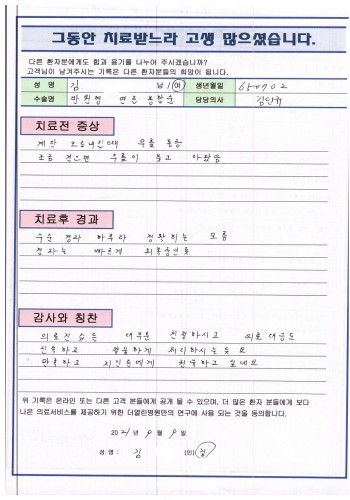 그동안 치료받느라 고생 많으셨습니다.
다른 환자분에게도 힘과 용기를 나누어 주시겠습니까?
고객님이 남겨주시는 기록은 다른 환자분들의 희망이 됩니다.
성 명 김 남 / 여 생년월일 650702
수술명 반월상 연골 봉합술 담당의사
치료전 증상
계단 오르내릴때 무릎 통증
조금 걸으면 무릎이 붓고 아팠음
치료후 경과
수술 경과 아무리 정확히는 모름
결과는 빠르게 회복중인듯
감사와 칭찬
의료진 습은 대부분 친절하시고 의료 대응도
신속하고 꼼꼼하게 처리하시는듯 보
만족하고 지인들에게 친절하고 싶네요
위 기록은 온라인 또는 다른 고객 분들에게 공개 될 수 있으며, 더 많은 환자 분들에게 보다
나은 의료서비스를 제공하기 위한 더열린병원만의 연구에 사용 되는 것을 동의합니다.
2021년 9월 9일
성 명 : 김 (인)